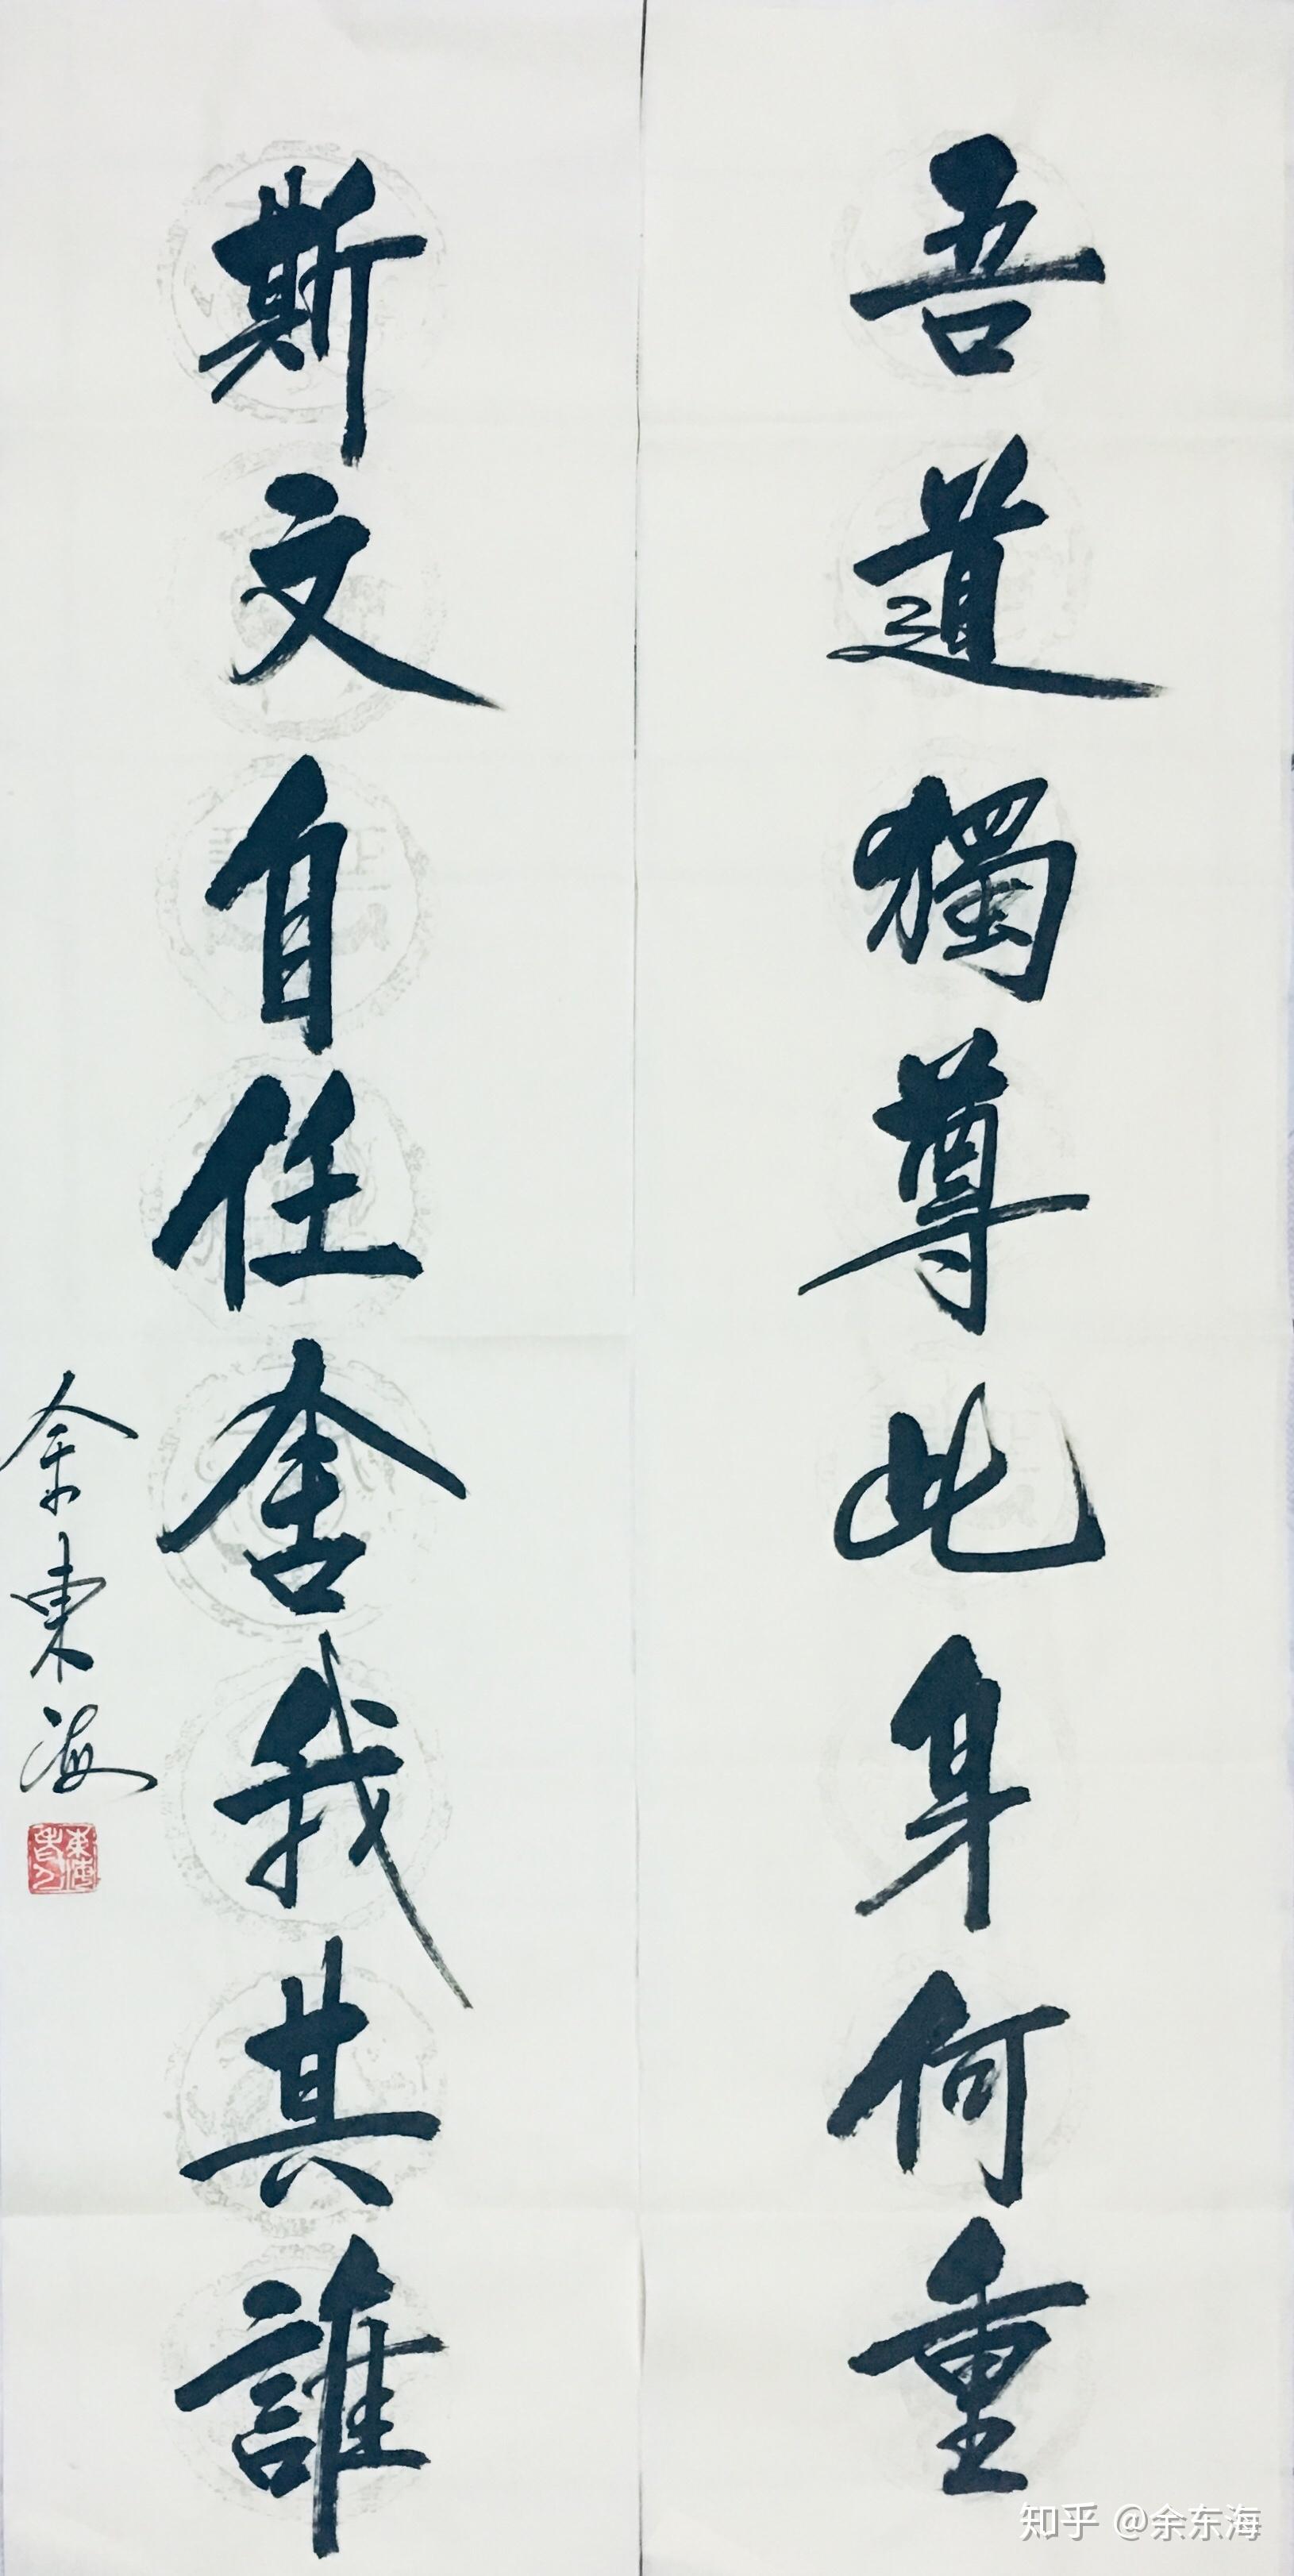 吾道獨尊此身何重
斯文自任舍我其誰
余東海
知乎 @余东海